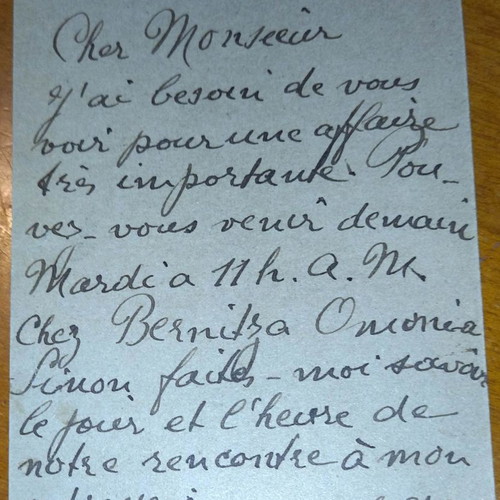 Cher Monsieur
J'ai besoin de vous
voir pour une affaire
très importante. Pou-
vez-vous venir demain
Mardi a 11 h. A. M.
Chez Bernitza Omonia
Sinon faites-moi savoir
le jour et l'heure de
notre rencontre à mon